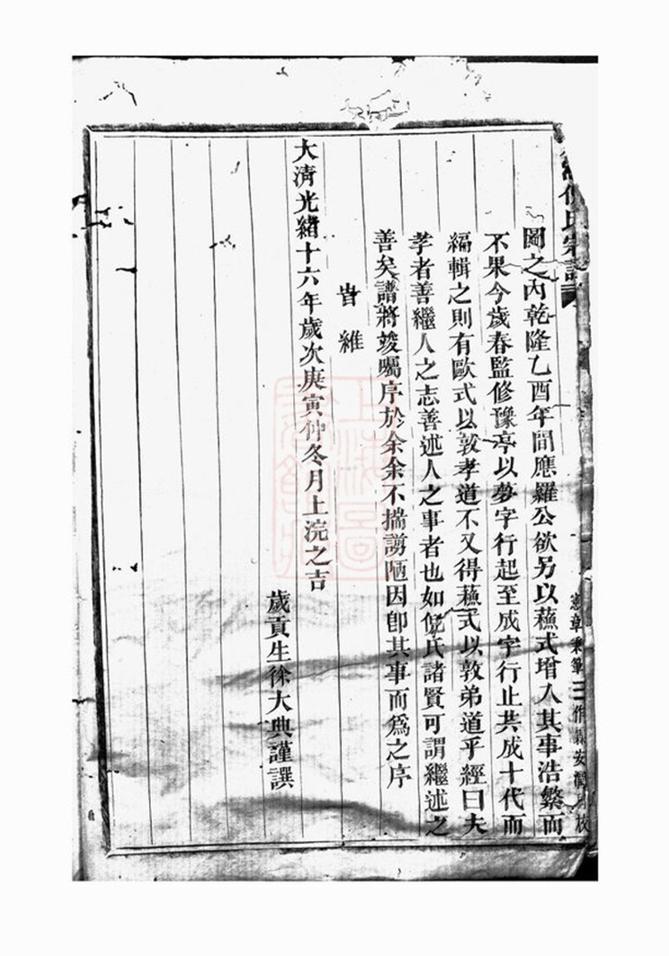 倪氏宗譜
圖之內乾隆乙酉年間應羅公欲另以蘓式增入其事浩繁而
不果今歲春監修豫亭以夢字行起至成字行止共成十代而
編輯之則有歐式以敦孝道不又得蘓式以敦弟道乎經曰夫
孝者善繼人之志善述人之事者也如倪氏諸賢可謂繼述之
善矣譜將竣囑序於余余不揣謭陋因卽其事而爲之序
旹維
大清光緒十六年歲次庚寅仲冬月上浣之吉
歲貢生徐大典謹譔